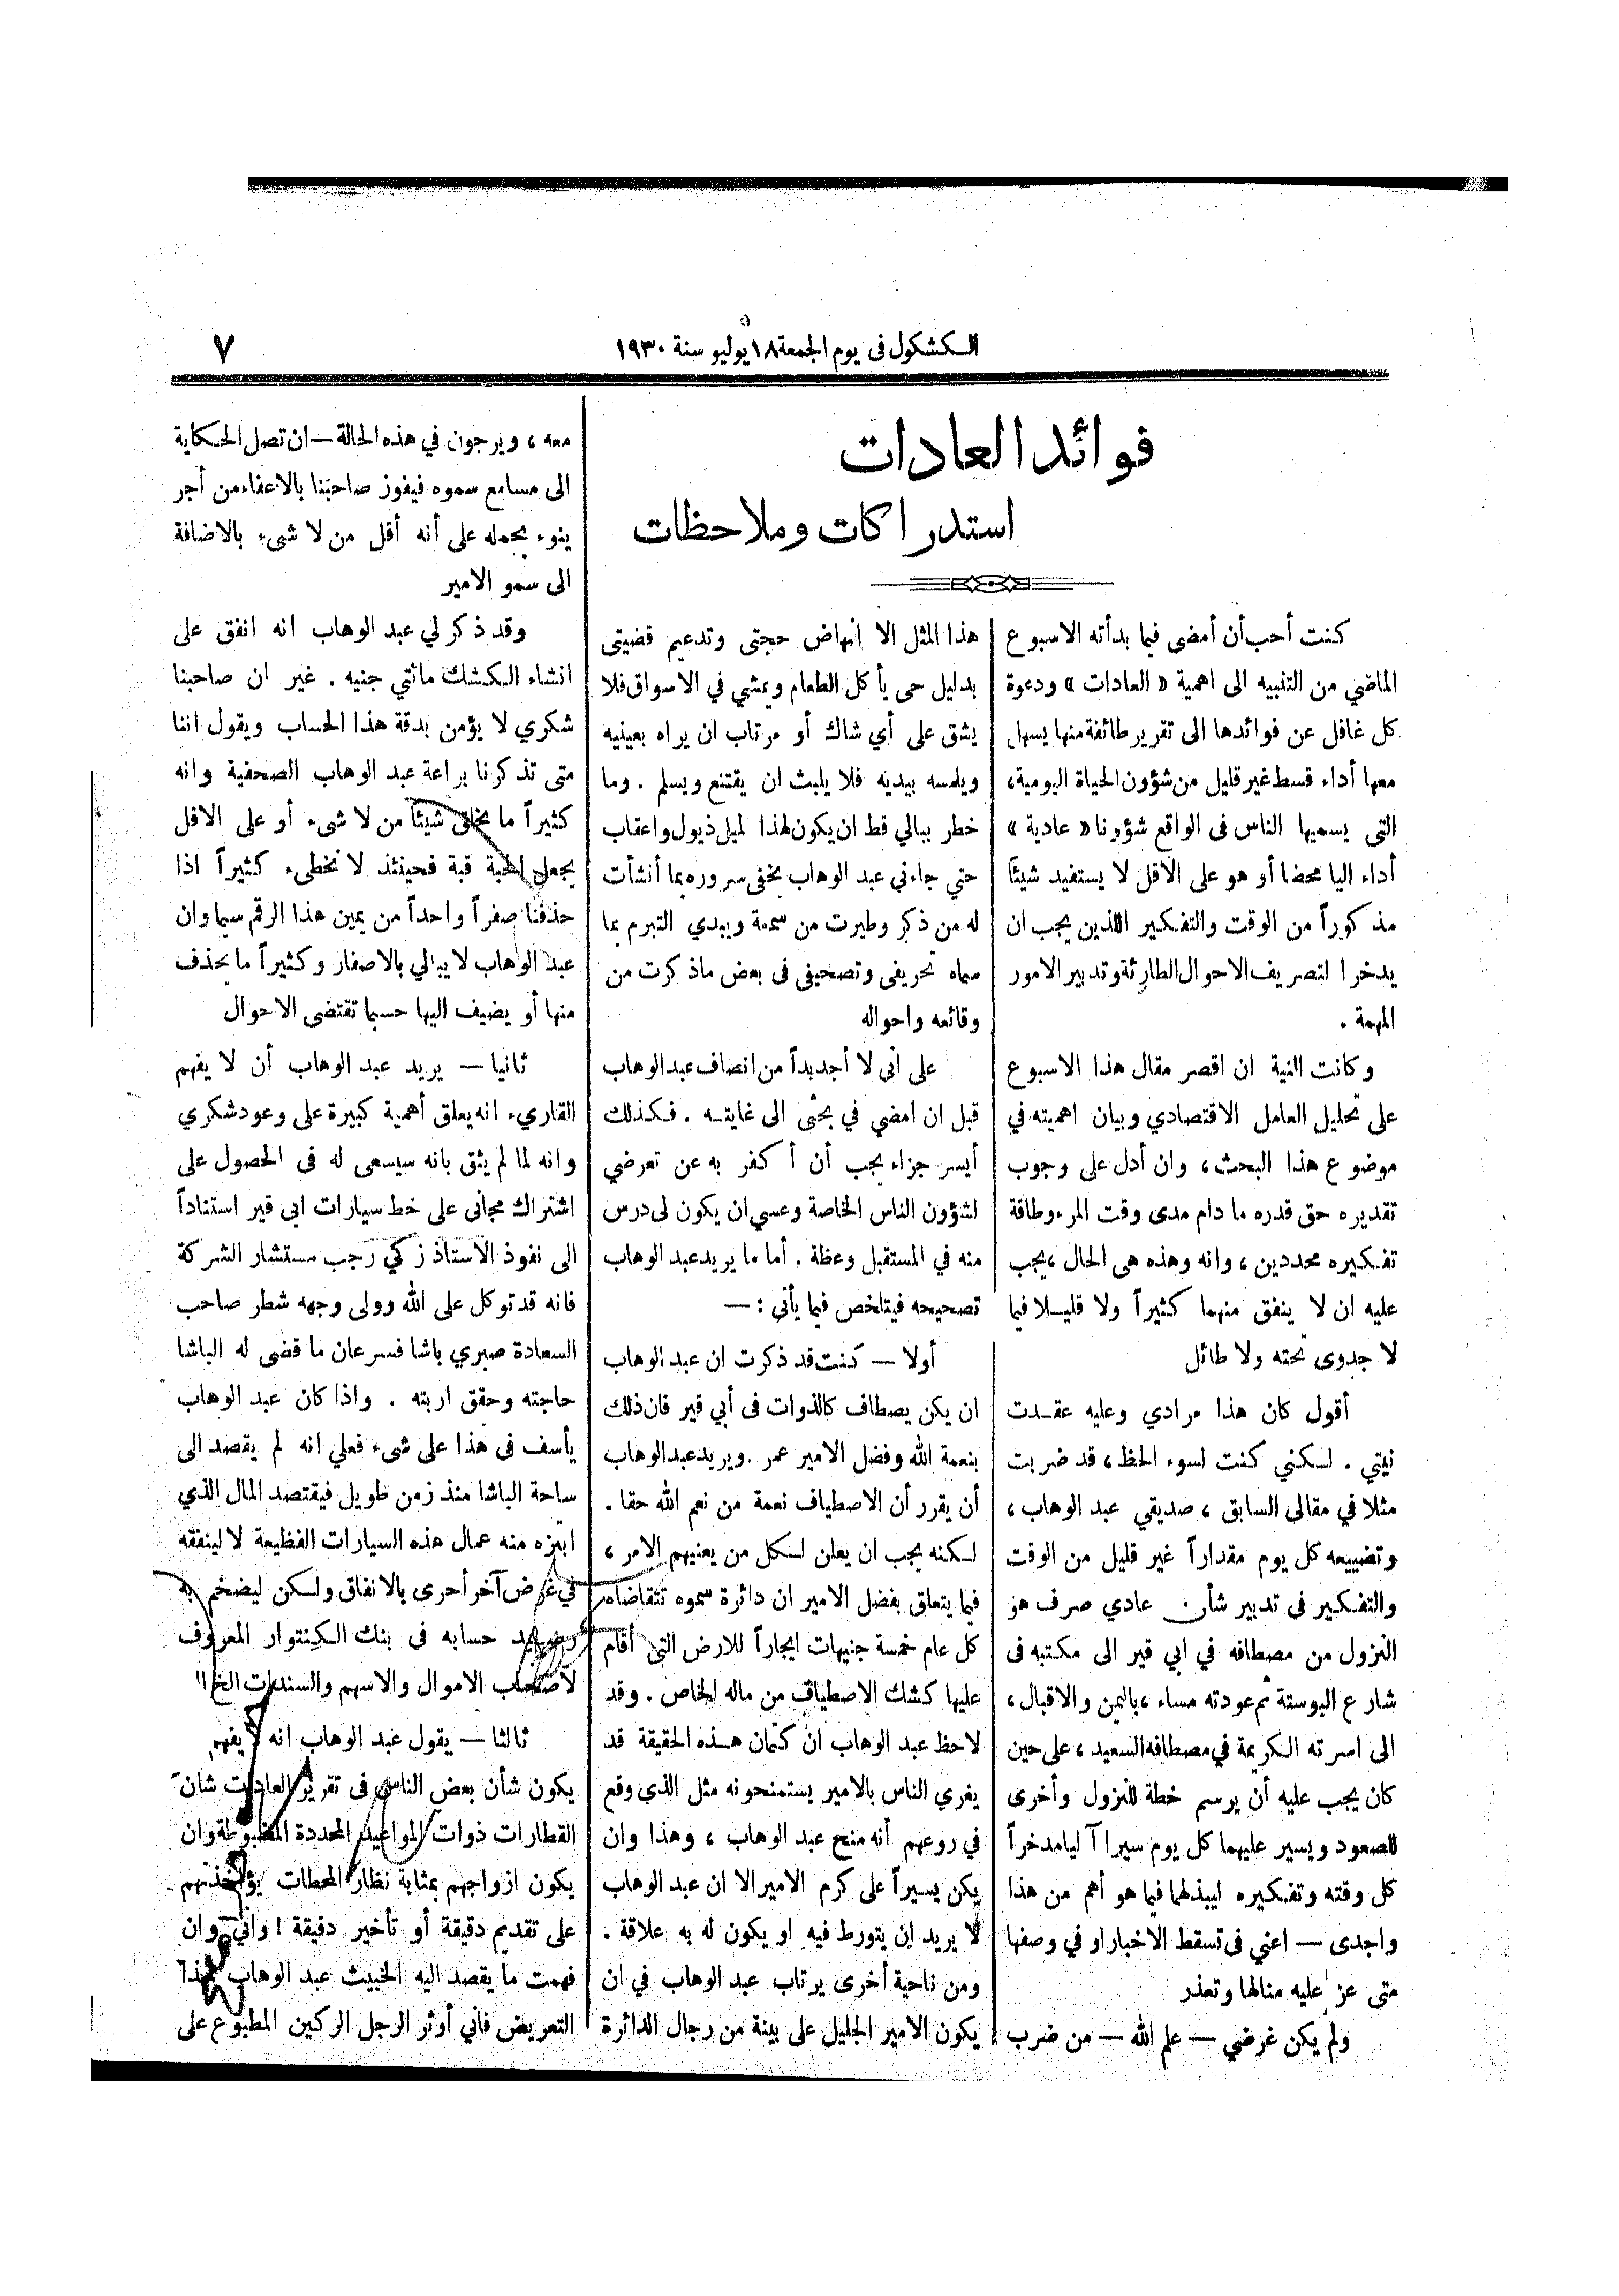 الكشكول فى يوم الجمعة ١٨ يوليو سنة ١٩٣٠
٧
فوائد العادات
استدراكات وملاحظات
كنت أحب أن أمضى فيما بدأته الاسبوع
الماضي من التنبيه الى اهمية « العادات » ودعوة
كل غافل عن فوائدها الى تقرير طائفة منها يسهل
معها أداء قسط غير قليل من شؤون الحياة اليومية،
التى يسميها الناس فى الواقع شؤونا « عادية »
أداء اليا محضا أو هو على الاقل لا يستفيد شيئا
مذكوراً من الوقت والتفكير اللذين يجب ان
يدخرا لتصريف الاحوال الطارئة وتدبير الامور
المهمة .
وكانت النية ان اقصر مقال هذا الاسبوع
على تحليل العامل الاقتصادي وبيان اهميته في
موضوع هذا البحث ، وان أدل على وجوب
تقديره حق قدره ما دام مدى وقت المرء وطاقة
تفكيره محددين ، وانه وهذه هى الحال ، يجب
عليه ان لا ينفق منهما كثيراً ولا قليلا فيما
لا جدوى تحته ولا طائل
أقول كان هذا مرادي وعليه عقدت
نيتي . لكنني كنت لسوء الحظ ، قد ضربت
مثلا في مقالى السابق ، صديقي عبد الوهاب ،
وتضييعه كل يوم مقداراً غير قليل من الوقت
والتفكير فى تدبير شأن عادي صرف هو
النزول من مصطافه في ابي قير الى مكتبه فى
شارع البوستة ثم عودته مساء ، باليمن والاقبال ،
الى اسرته الكريمة في مصطافه السعيد ، على حين
كان يجب عليه أن يرسم خطة للنزول وأخرى
للصعود ويسير عليهما كل يوم سيراً آليا مدخراً
كل وقته وتفكيره ليبذلهما فيما هو أهم من هذا
واجدى — اعني فى تسقط الاخبار او في وصفها
متى عز عليه منالها وتعذر
ولم يكن غرضي — علم الله — من ضرب
هذا المثل الا انهاض حجتى وتدعيم قضيتى
بدليل حى يأكل الطعام ويمشي في الاسواق فلا
يشق على أي شاك أو مرتاب ان يراه بعينيه
ويلمسه بيديه فلا يلبث ان يقتنع ويسلم . وما
خطر ببالي قط ان يكون لهذا لميل ذيول واعقاب
حتي جاءني عبد الوهاب يخفى سروره بما أنشأت
له من ذكر وطيرت من سمعة ويبدي التبرم بما
سماه تحريفى وتصحيفى فى بعض ما ذكرت من
وقائعه واحواله
على انى لا أجد بداً من انصاف عبد الوهاب
قبل ان امضي في بحثى الى غايته . فكذلك
أيسر جزاء يجب أن أكفر به عن تعرضي
لشؤون الناس الخاصة وعسى ان يكون لى درس
منه في المستقبل وعظة . أما ما يريد عبد الوهاب
تصحيحه فيتلخص فيما يأتى : —
أولا — كنت قد ذكرت ان عبد الوهاب
ان يكن يصطاف كالذوات فى أبي قير فان ذلك
بنعمة الله وفضل الامير عمر . ويريد عبد الوهاب
أن يقرر أن الاصطياف نعمة من نعم الله حقا .
لكنه يجب ان يعلن لكل من يعنيهم الامر ،
فيما يتعلق بفضل الامير ان دائرة سموه تتقاضاه
كل عام خمسة جنيهات ايجاراً للارض التى أقام
عليها كشك الاصطياف من ماله الخاص . وقد
لاحظ عبد الوهاب ان كتمان هذه الحقيقة قد
يغري الناس بالامير يستمنحونه مثل الذي وقع
في روعهم أنه منح عبد الوهاب ، وهذا وان
يكن يسيراً على كرم الامير الا ان عبد الوهاب
لا يريد ان يتورط فيه او يكون له به علاقة .
ومن ناحية أخرى يرتاب عبد الوهاب في ان
يكون الامير الجليل على بينة من رجال الدائرة
معه ، ويرجون في هذه الحالة — ان تصل الحكاية
الى مسامع سموه فيفوز صاحبنا بالاعفاء من أجر
ينوء بحمله على أنه أقل من لا شىء بالاضافة
الى سمو الامير
وقد ذكر لي عبد الوهاب انه انفق على
انشاء الكشك مائتي جنيه . غير ان صاحبنا
شكري لا يؤمن بدقة هذا الحساب ويقول اننا
متى تذكرنا براعة عبد الوهاب الصحفية وانه
كثيراً ما يخلق شيئا من لا شىء أو على الاقل
يجعل الحبة قبة فحينئذ لا نخطىء كثيراً اذا
حذفنا صفراً واحداً من يمين هذا الرقم سيما وان
عبد الوهاب لا يبالي بالاصفار وكثيراً ما يحذف
منها أو يضيف اليها حسبما تقتضى الاحوال
ثانيا — يريد عبد الوهاب أن لا يفهم
القارىء انه يعلق أهمية كبيرة على وعود شكري
وانه لما لم يثق بانه سيسعى له فى الحصول على
اشتراك مجانى على خط سيارات ابى قير استناداً
الى نفوذ الاستاذ زكي رجب مستشار الشركة
فانه قد توكل على الله وولى وجهه شطر صاحب
السعادة صبري باشا فسرعان ما قضى له الباشا
حاجته وحقق اربته . واذا كان عبد الوهاب
يأسف فى هذا على شىء فعلي انه لم يقصد الى
ساحة الباشا منذ زمن طويل فيقتصد المال الذي
ابتزه منه عمال هذه السيارات الفظيعة لا لينفقه
في غرض آخر أحرى بالانفاق ولكن ليضخم به
رصيد حسابه في بنك الكنتوار المعروف
لاصحاب الاموال والاسهم والسندات الخ !!
ثالثا — يقول عبد الوهاب انه لا يفهم
يكون شأن بعض الناس فى تقرير العادات شان
القطارات ذوات المواعيد المحددة المضبوطة وان
يكون ازواجهم بمثابة نظار المحطات يؤاخذنهم
على تقديم دقيقة أو تأخير دقيقة ! وانى وان
فهمت ما يقصد اليه الخبيث عبد الوهاب بهذا
التعريض فاني أوثر الرجل الركين المطبوع على